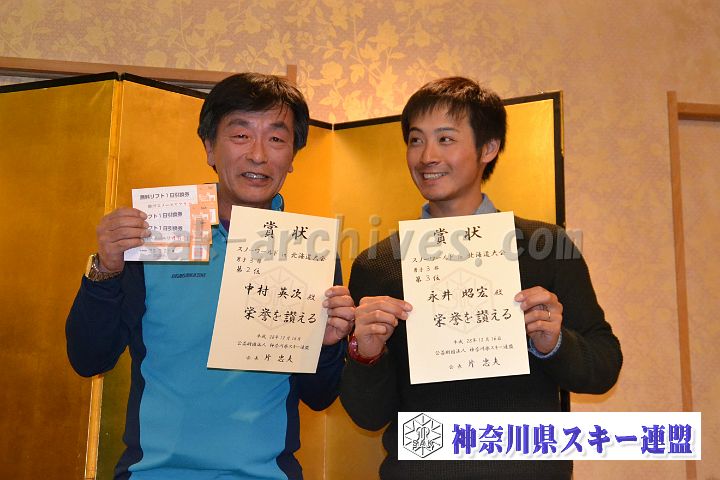 無料リフト1日引換券
リフト1日引換券
リフト1日引換券
賞状
スノーワールド in 北海道大会
男子3部
第2位
中村 英次 殿
栄誉を讃える
平成 28年12月16日
公益財団法人 神奈川県スキー連盟
会長 片 忠夫
賞状
スノーワールド in 北海道大会
男子3部
第3位
永井 昭宏 殿
栄誉を讃える
平成 28年12月16日
公益財団法人 神奈川県スキー連盟
会長 片 忠夫
sak-archives.com
神奈川県スキー連盟